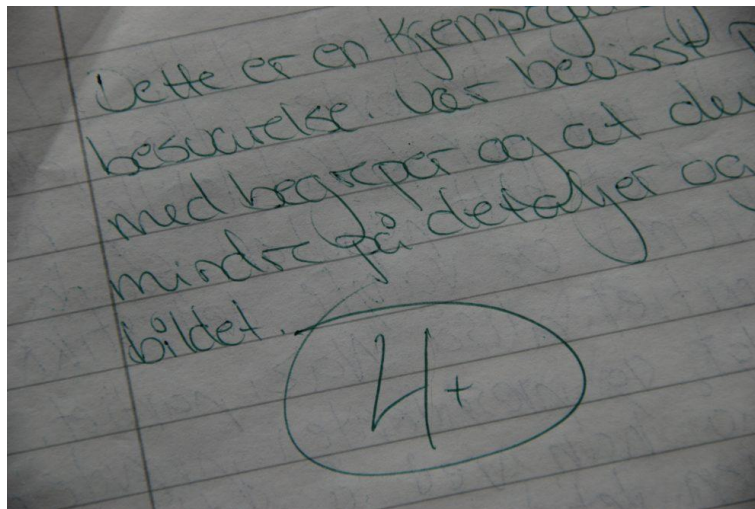 Dette er en
besvarelse. Vær bevisst
med begreper og at du
mindre på detaljer og
bildet.
4+